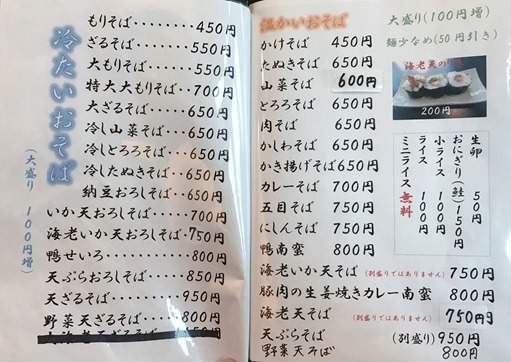 冷たいおそば
(大盛り 100円増)
もりそば・・・・・・・・450円
ざるそば・・・・・・・・550円
大もりそば・・・・・・・550円
特大大もりそば・・700円
大ざるそば・・・・・・650円
冷し山菜そば・・・・650円
冷しとろろそば・・・650円
冷したぬきそば・・・650円
納豆おろしそば・・・650円
いか天おろしそば・・・・700円
海老いか天おろしそば・750円
鴨せいろ・・・・・・・・・・800円
天ぷらおろしそば・・・・850円
天ざるそば・・・・・・・・950円
野菜天ざるそば・・・・・800円
温かいおそば
かけそば 450円
たぬきそば 650円
山菜そば 600円
とろろそば 650円
肉そば 650円
かしわそば 650円
かき揚げそば 650円
カレーそば 700円
五目そば 750円
にしんそば 750円
鴨南蛮 800円
海老いか天そば (別盛りではありません) 750円
豚肉の生姜焼きカレー南蛮 800円
海老天そば (別盛りではありません) 750円
天ぷらそば (別盛り) 950円
野菜天そば 800円
大盛り(100円増)
麺少なめ(50円引き)
海老天のり巻
200円
生卵 50円
おにぎり(鮭) 150円
小ライス 100円
ライス 100円
ミニライス 無料